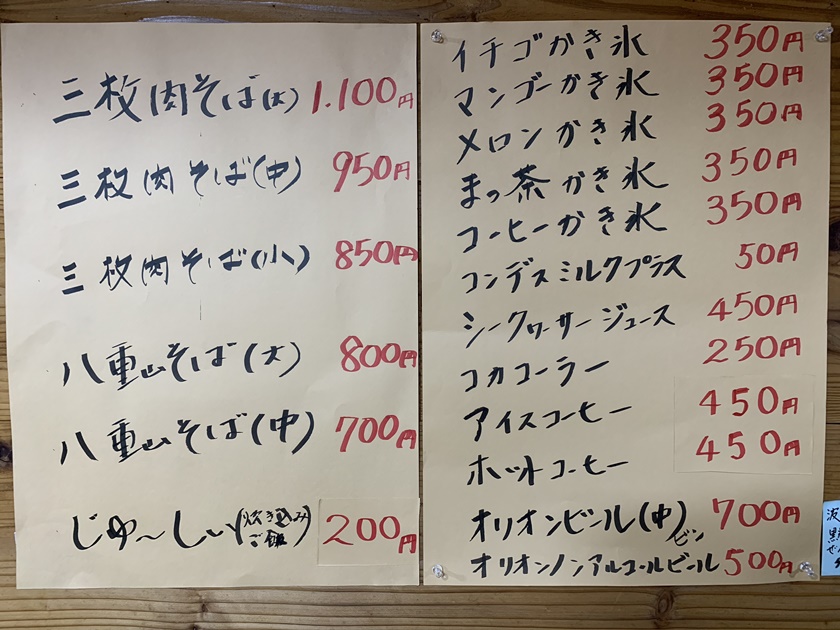 三枚肉そば(大) 1.100円
三枚肉そば(中) 950円
三枚肉そば(小) 850円
八重山そば(大) 800円
八重山そば(中) 700円
じゅ〜しぃ(炊き込みご飯) 200円
イチゴかき氷 350円
マンゴーかき氷 350円
メロンかき氷 350円
まっ茶かき氷 350円
コーヒーかき氷 350円
コンデスミルクプラス 50円
シークヮーサージュース 450円
コカコーラー 250円
アイスコーヒー 450円
ホットコーヒー 450円
オリオンビール(中)ビン 700円
オリオンノンアルコールビール 500円